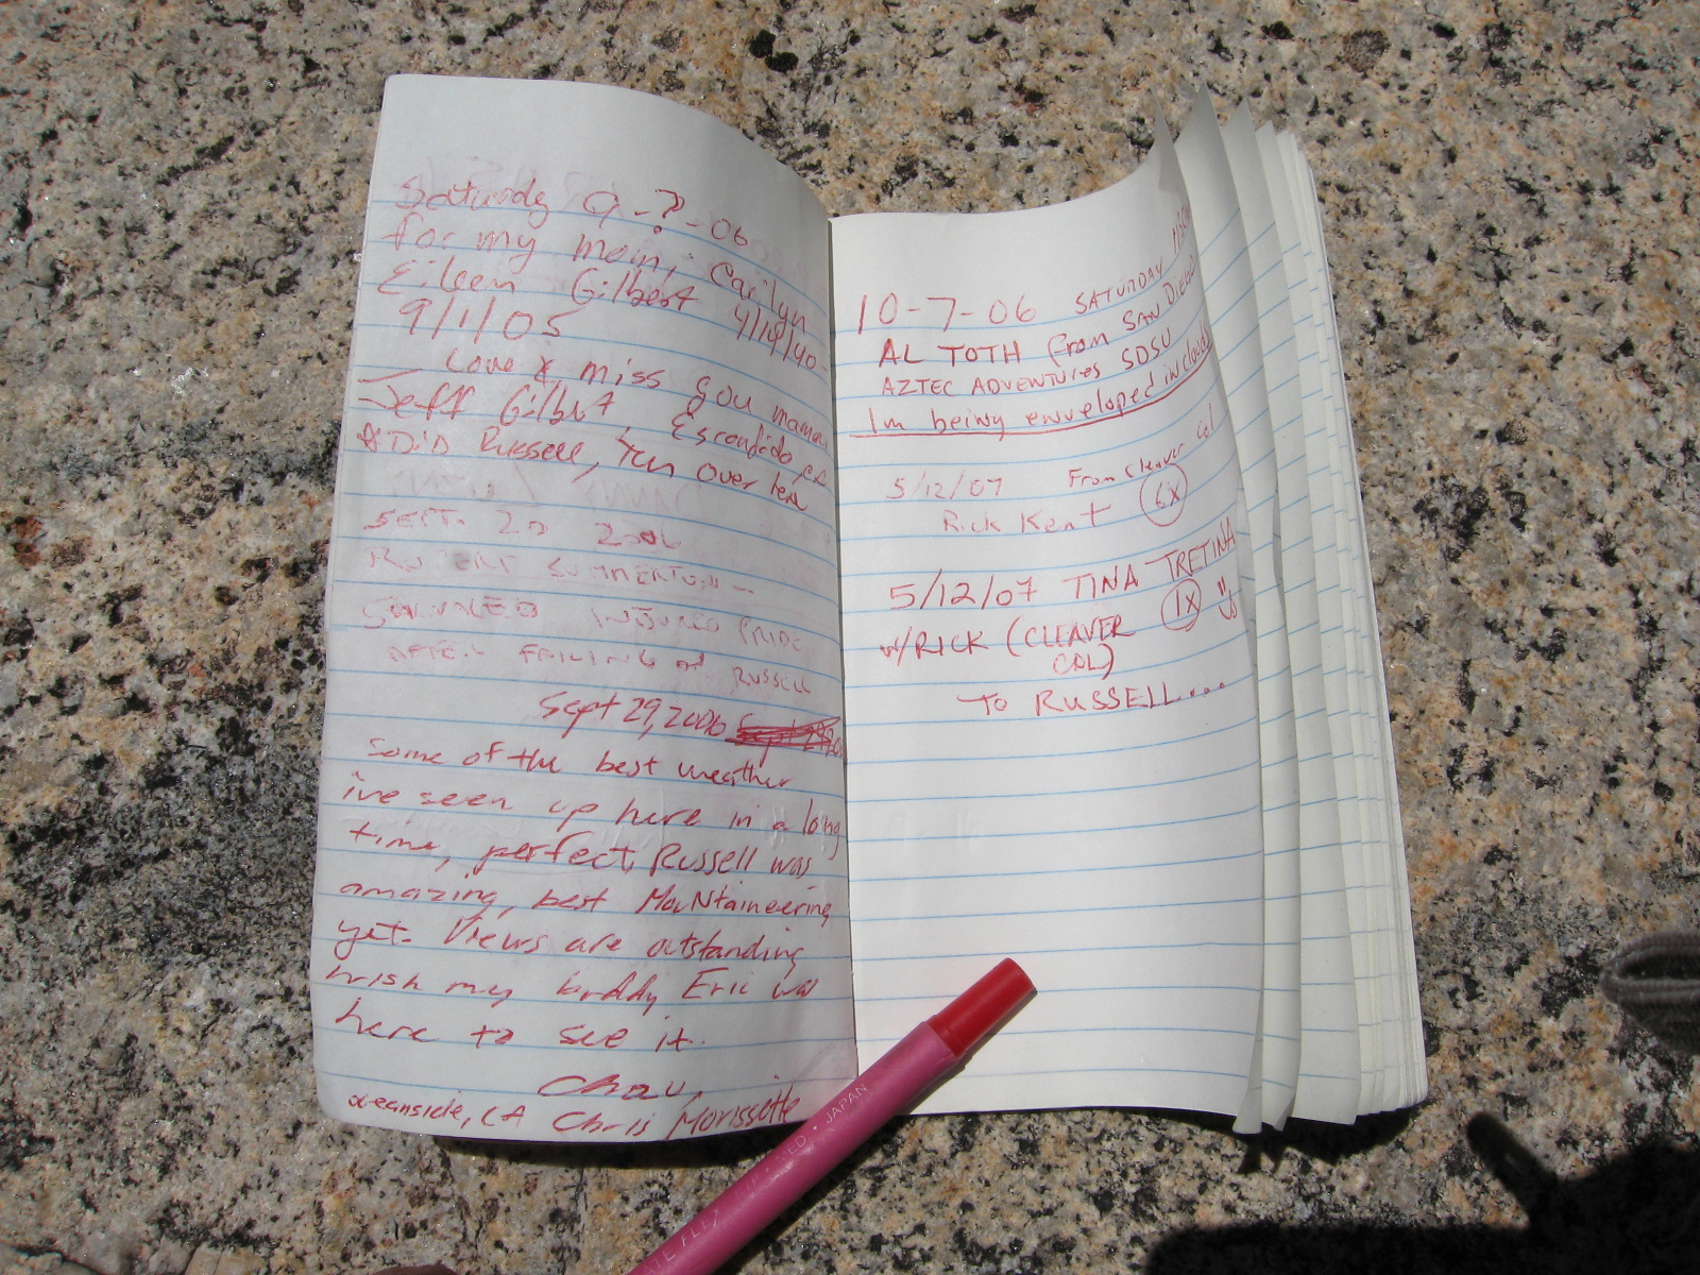 Saturdy 9-?-06
for my mom, Carilyn
Eileen Gilbert 4/14/40 -
9/1/05
Love & miss you mama
Jeff Gilbert, Escondido, ca
& Did Russell, Ten over here
SEPT. 20 2006
ROBERT SUMMERTON -
SALVAGED INJURED PRIDE
AFTER FAILING ON RUSSELL
Sept 29, 2006
Some of the best weather
i've seen up here in a long
time, perfect, Russell was
amazing, best MouNtaineering
yet. Views are outstanding
wish my buddy Eric was
here to see it.
Chau,
oceanside, CA Chris Morissette
10-7-06 SATURDAY
AL TOTH from SAN DIEGO
AZTEC ADVENTURES SDSU
Im being enveloped in clouds
5/12/07 From Cleaver Col
Rick Kent 6x
5/12/07 TINA TRETINA
w/RICK (CLEAVER 1x
COL)
TO RUSSELL...
JAPAN